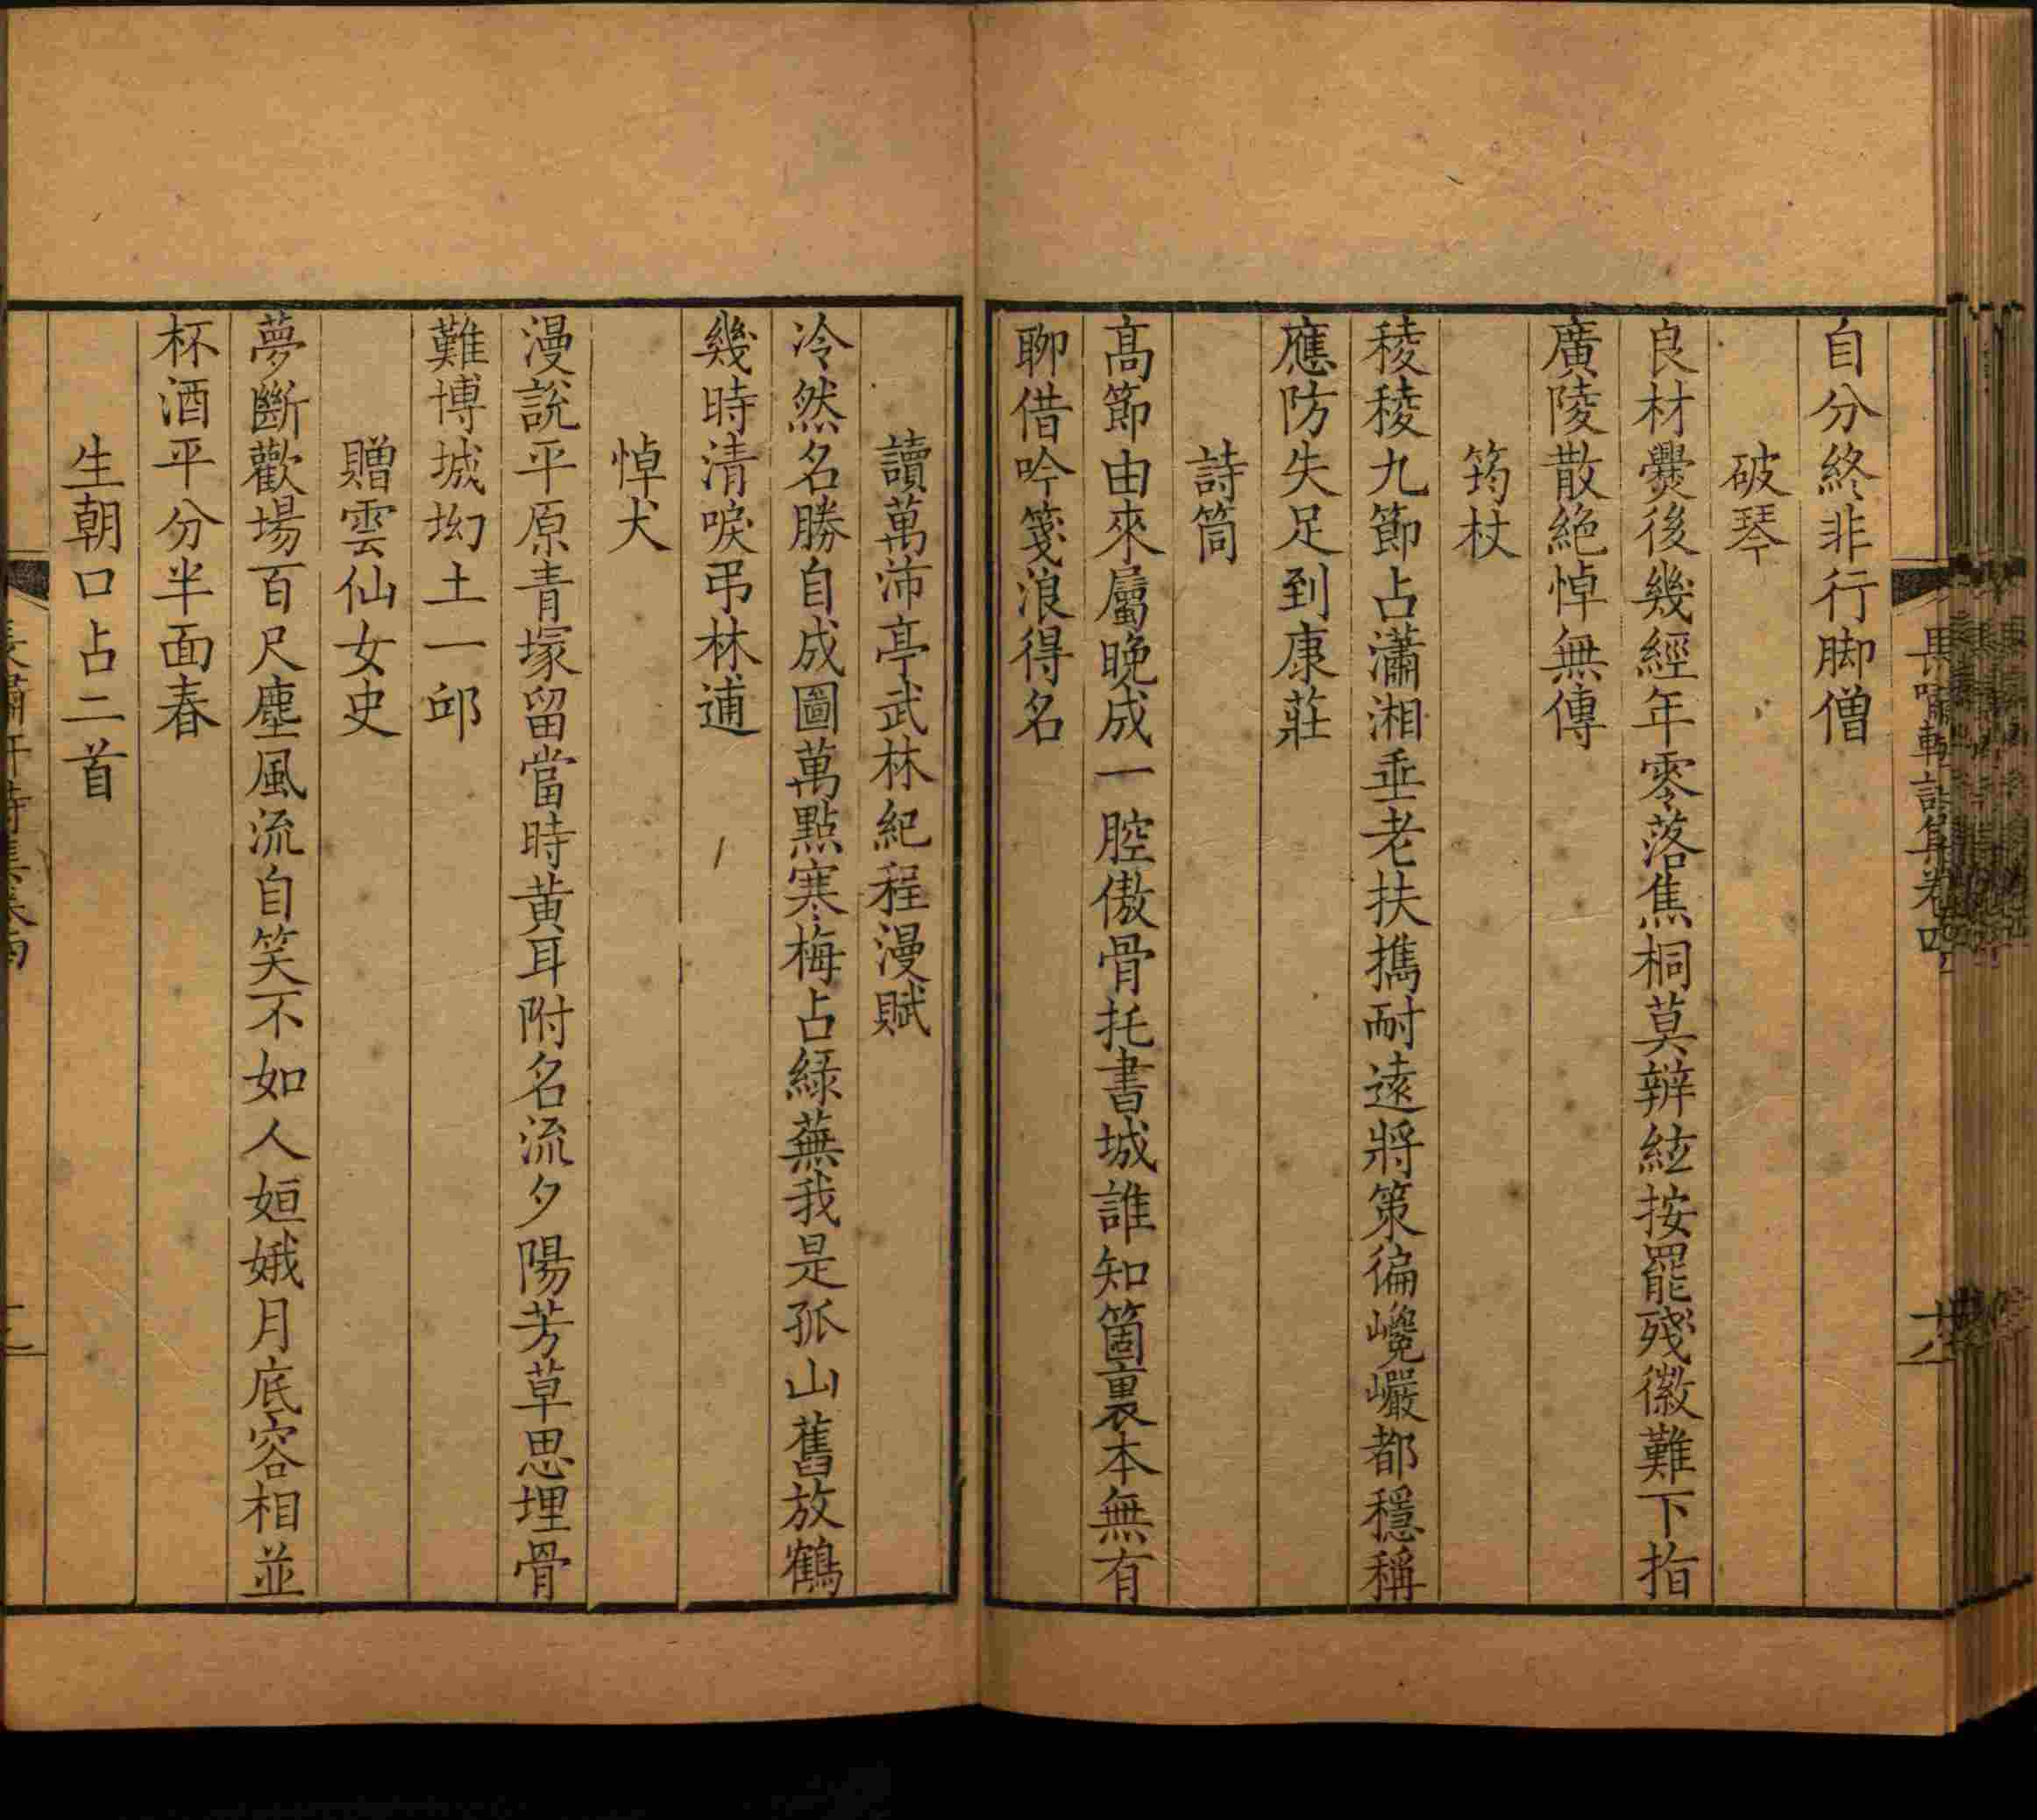 長嘯軒詩集卷四
十八
自分終非行脚僧
破琴
良材爨後幾經年零落焦桐莫辨絃按罷殘徽難下指
廣陵散絶悼無傳
筠杖
稜稜九節占瀟湘垂老扶携耐遠將策徧巉巖都穩稱
應防失足到康莊
詩筒
高節由來屬晚成一腔傲骨托書城誰知箇裏本無有
聊借吟箋浪得名
讀萬沛亭武林紀程漫賦
冷然名勝自成圖萬點寒梅占緑蕪我是孤山舊放鶴
幾時清唳弔林逋
悼犬
漫説平原青塚留當時黄耳附名流夕陽芳草思埋骨
難博城坳土一邱
贈雲仙女史
夢斷歡場百尺塵風流自笑不如人姮娥月底容相並
杯酒平分半面春
生朝口占二首